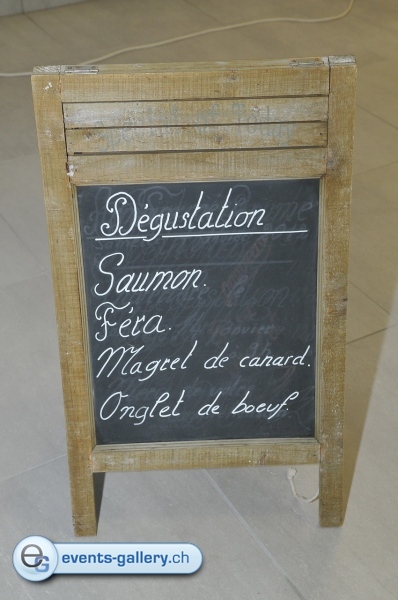 Dégustation
Saumon.
Féra.
Magret de canard.
Onglet de boeuf.
eG events-gallery.ch